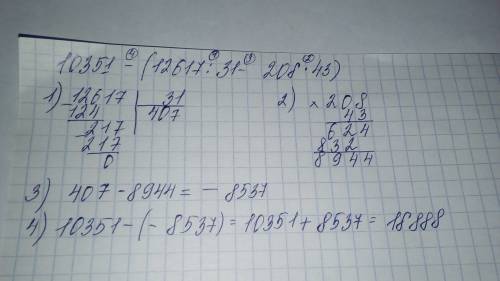 ④ ① ③ ②
10351 - (12617 : 31 - 208 · 43)
1) 12617 | 31 2) × 208
- 124 407 43
- 217 624
217 832
0 8944
3) 407 - 8944 = - 8537
4) 10351 - (- 8537) = 10351 + 8537 = 18888